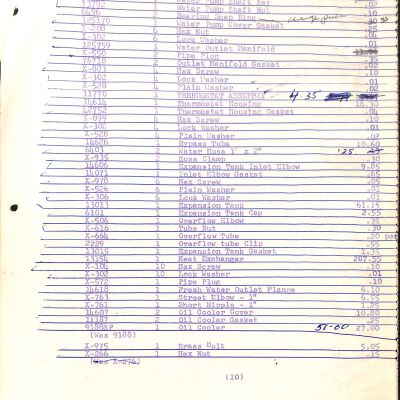 13792 1 Water Pump Shaft Key .02
Water Pump Shaft Nut .10
125170 Bearing Snap Ring .30
X-208 Water Pump Cover Gasket .25
X-302 6 Hex Nut .01
125759 Lock Washer .01
X-550 1 Water Outlet Manifold
76710 2 Pipe Plug .35
X-801 4 Outlet Manifold Gasket .02
X-302 4 Hex Screw .10
X-528 4 Lock Washer .01
11770 1 Plain Washer .02
14614 1 THERMOSTAT ASSEMBLY 4 35
42752 1 Thermostat Housing 16.30
X-899 4 Thermostat Housing Gasket .04
X-302 4 Hex Screw .10
X-528 4 Lock Washer .01
14626 1 Plain Washer .02
6403 1 Bypass Tube 10.60
X-935 2 Water Hose 1" x 2" .25
14606 1 Hose Clamp .30
14071 1 Expansion Tank Inlet Elbow 9.85
X-978 6 Inlet Elbow Gasket .65
X-526 6 Hex Screw .05
X-306 6 Plain Washer .01
13013 1 Lock Washer .01
6101 1 Expansion Tank 61.15
X-506 1 Expansion Tank Cap 2.55
X-616 1 Overflow Elbow .35
X-664 1 Tube Nut .30
2229 1 Overflow Tube .20 per
13015 1 Overflow tube Clip .55
13154 1 Expansion Tank Gasket 1.35
X-104 10 Heat Exchanger 207.55
X-302 10 Hex Screw .10
X-572 1 Lock Washer .01
14618 1 Pipe Plug .10
X-763 1 Fresh Water Outlet Flange 6.10
X-761 1 Street Elbow - 1" 6.55
14607 2 Short Nipple - 1" 1.25
11187 2 Oil Cooler Cover 10.80
9188SP 1 Oil Cooler Gasket .25
(Was 9188) Oil Cooler 51-60 27.00
X-975 1 Brass Bolt 5.05
X-266 1 Hex Nut .15
(Was X-276)
(10)